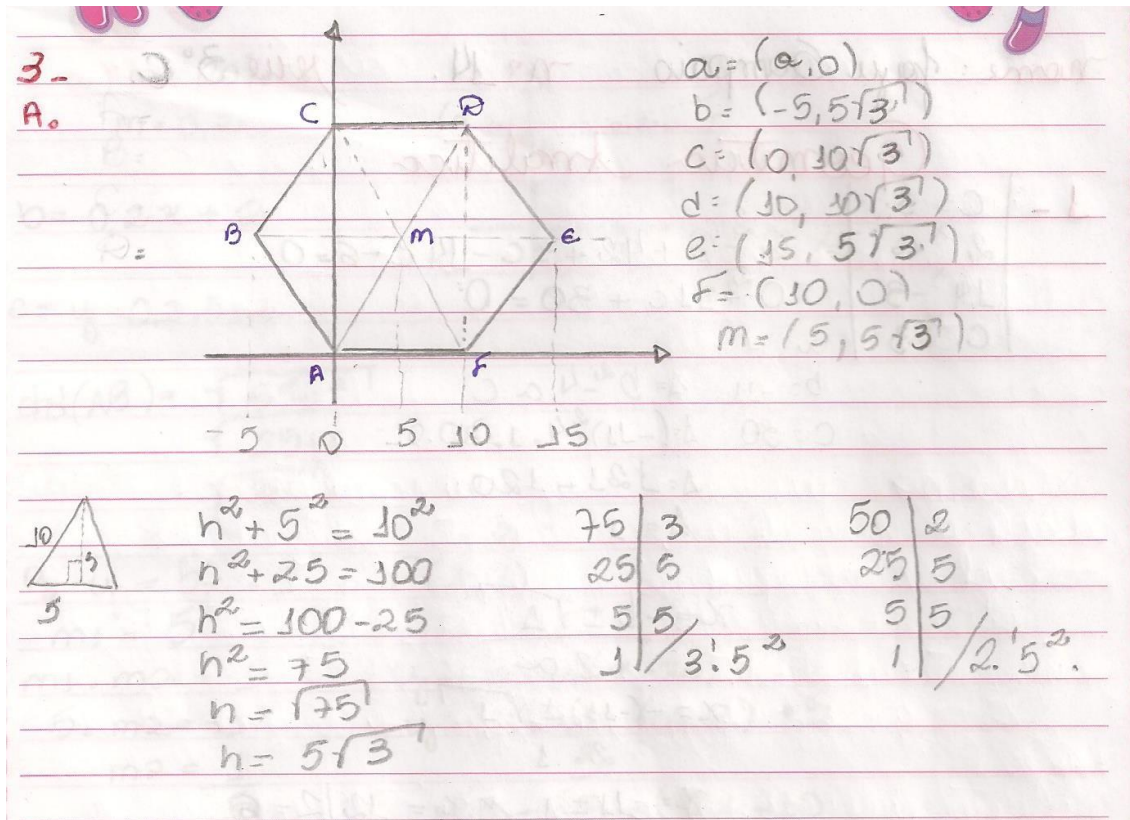 3-
A.
C D
B M E
A F
-5 0 5 10 15
a = (a, 0)
b = (-5, 5√3)
c = (0, 10√3)
d = (10, 10√3)
e = (15, 5√3)
F = (10, 0)
m = (5, 5√3)
10
5
h² + 5² = 10²
h² + 25 = 100
h² = 100 - 25
h² = 75
h = √75
h = 5√3
75 | 3
25 | 5
5 | 5
1 | / 3¹. 5²
50 | 2
25 | 5
5 | 5
1 | / 2¹. 5².